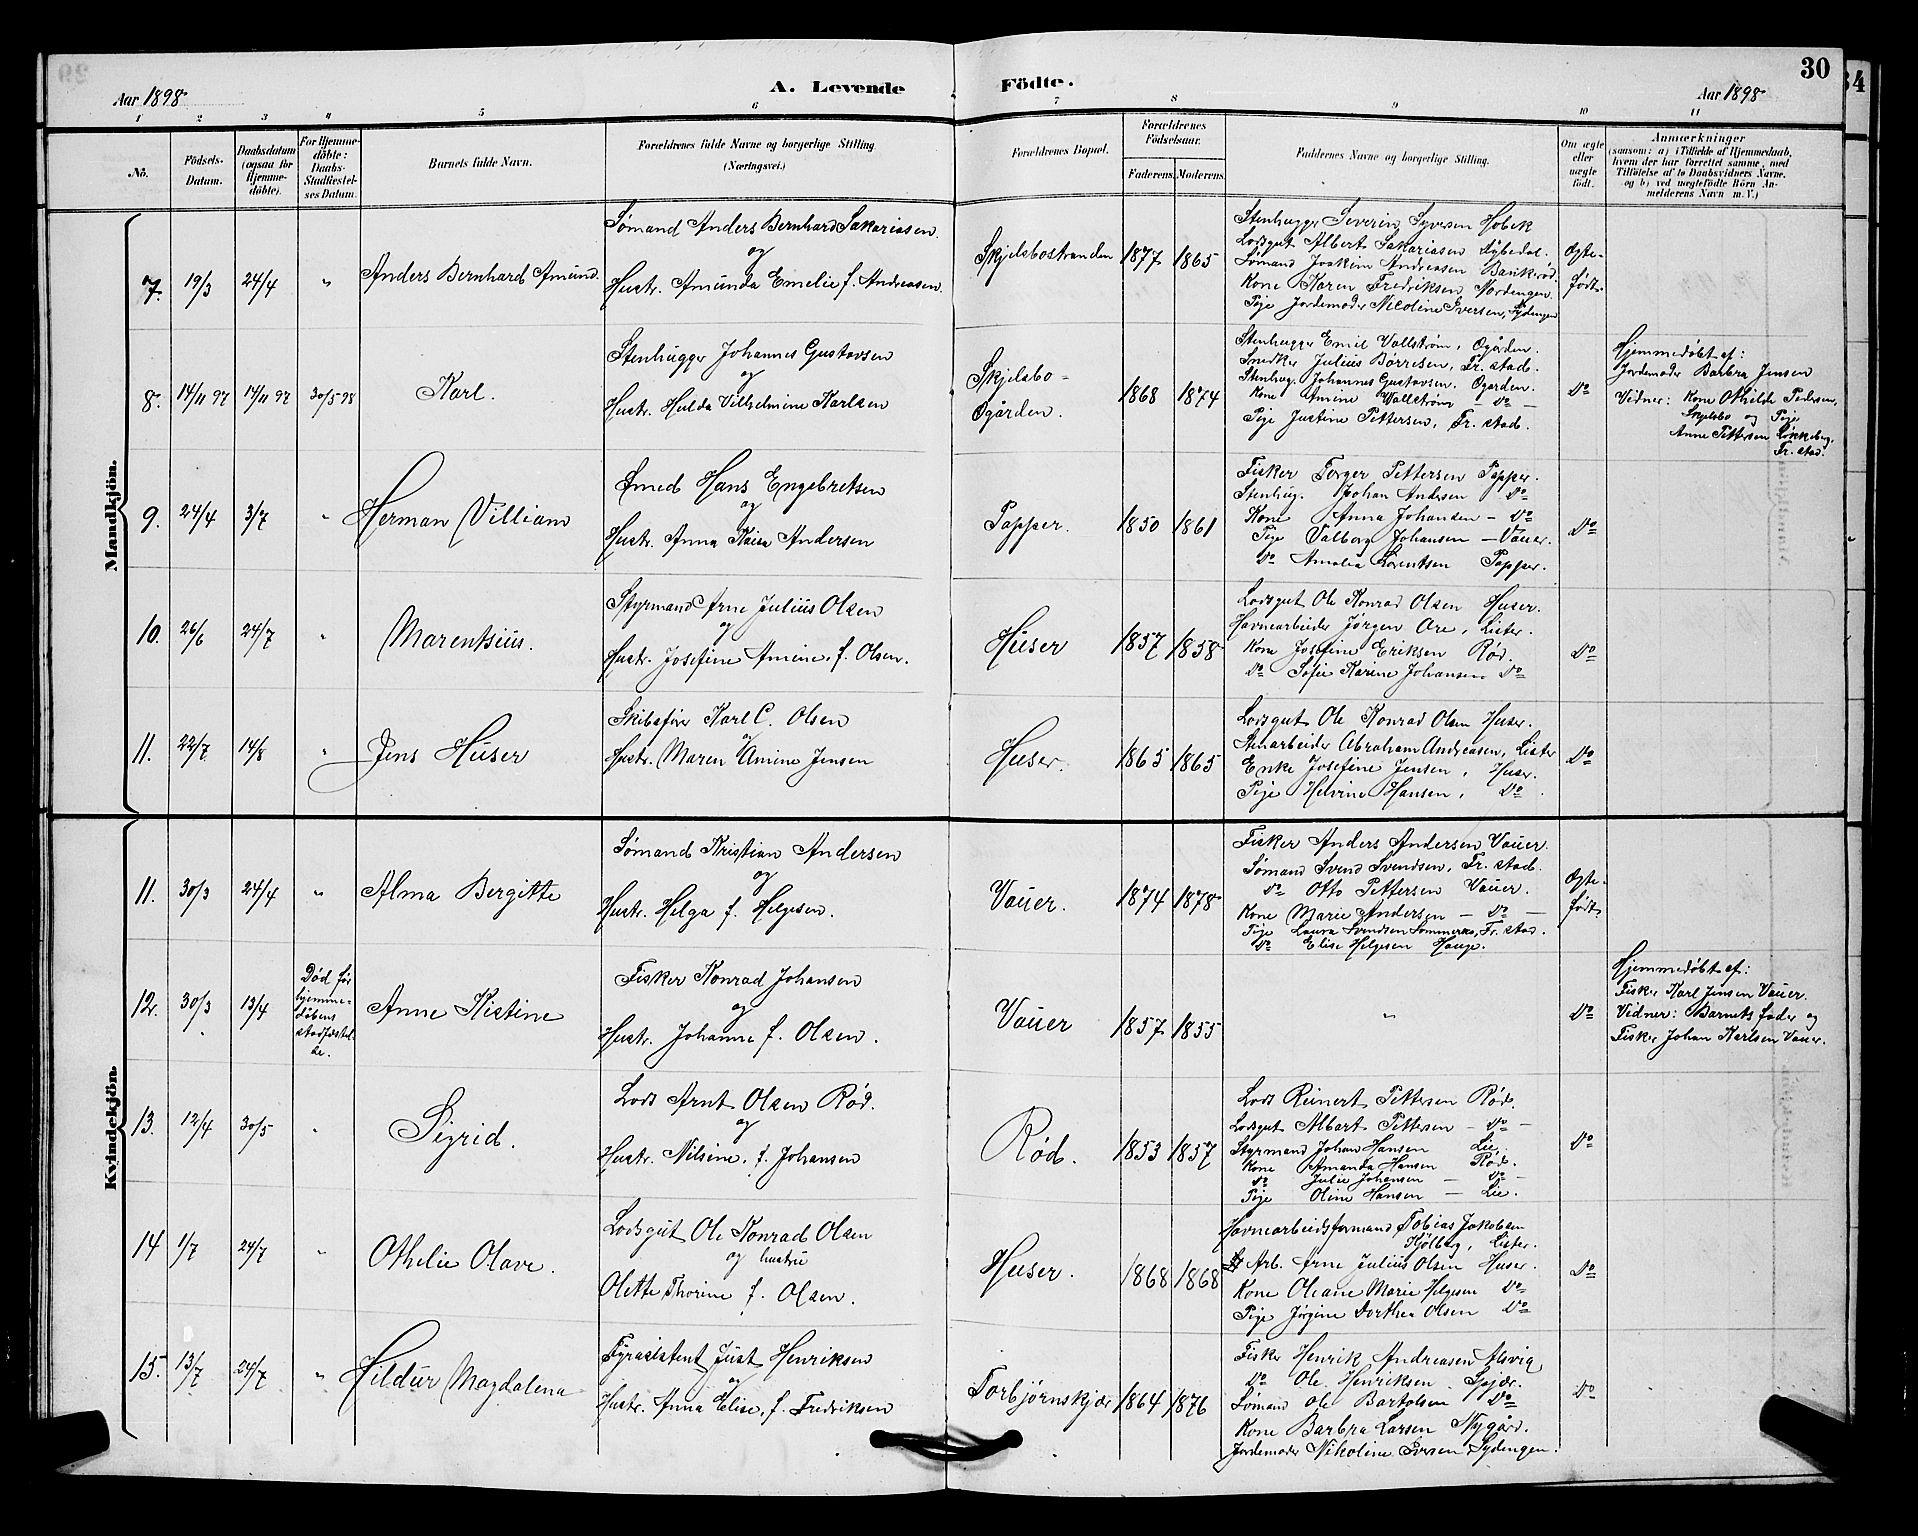 30
Aar 1898
A. Levende Födte.
Aar 1898
1 2 3 4 5 6 7 8 9 10 11
Nô.
Födsels-Datum.
Daabsdatum (ogsaa for Hjemmedöbte).
For Hjemmedöbte: Daabs-Stadfæstelses Datum.
Barnets fulde Navn.
Forældrenes fulde Navne og borgerlige Stilling (Næringsvei.)
Forældrenes Bopæl.
Forældrenes Födselsaar.
Faderens. Moderens.
Faddernes Navne og borgerlige Stilling.
Om ægte eller uægte födt.
Anmærkninger
(saasom: a) i Tilfælde af Hjemmedaab, hvem der har forrettet samme, med Tilföielse af to Daabsvidners Navne, og b) ved uægtefödte Börn Anmelderens Navn m. V.)
Mandkjön.
7. 19/3 24/4 " Anders Bernhard Amund.
Sømand Anders Bernhard Sakariasen
og
Hustr. Amunda Emelie f. Andreasen.
Skjelsbostranden 1877 1865
Stenhugger Severin Syversen Hobek
Lodsgut Albert Sakariasen Dybedal.
Sømand Joakim Andreasen Bankerød.
Kone Karen Fredriksen Nordengen.
Pige Jordemoder Nicoline Iversen, Sydengen
Ægte-
født.
8. 14/11 97 14/11 97 30/5 98 Karl.
Stenhugger Johannes Gustavsen
og
Hustr. Hulda Vilhelmine Karlsen
Skjelsbo-
Øgården. 1868 1874
Stenhugger Emil Vallstrøm, Øgården.
Snedker Julius Børresen, Fr. stad.
Stenhug. Johannes Gustavsen. Øgarden.
Kone Amine Wallstrøm - do -
Pige Justine Pettersen, Fr. stad.
do
Hjemmedøbt af:
Jordemoder Barbra Jensen
Vidner: Kone Othilde Pedersen,
Skjelsbo og Pige
Anne Pettersen Løkkeberg,
Fr. stad.
9. 24/4 3/7 " Herman Villiam
Smed Hans Engebretsen
og
Hustr. Anna Kaisa Andersen
Papper. 1850 1861
Fisker Torger Pettersen Papper.
Stenhug. Johan Andersen do
Kone Anna Johansen - do
Pige Valborg Johansen - Vauer.
do Amalia Lorentsen Papper.
do
10. 26/6 24/7 " Marentsius.
Styrmand Arne Julius Olsen
og
Hustr. Josefine Amine, f. Olsen.
Huser 1857 1858
Lodsgut Ole Konrad Olsen Huser.
Havnearbeider Jørgen Ore, Lister.
Kone Josefine Eriksen Rød.
do Sofie Karine Johansen do
do
11. 22/7 14/8 " Jens Huser
Skibsfører Karl C. Olsen
og
Hustr. Maren Amine Jensen
Huser. 1865 1865
Lodsgut Ole Konrad Olsen Huser.
Stenarbeider Abraham Andreasen, Lister
Enke Josefine Jensen, Huser.
Pige Helvine Hansen, do.
do
Kvindekjön.
11. 30/3 24/4 " Alma Bergitte
Sømand Kristian Andersen
og
Hustr. Helga f. Helgesen.
Vauer. 1874 1878
Fisker Anders Andersen Vauer.
Sømand Svend Svendsen, Fr. stad.
do Otto Pettersen Vauer.
Kone Marie Andersen - do -
Pige Laura Svendsen Sommerro, Fr. stad.
do Elise Helgesen Hauge.
Ægte-
født.
12. 30/3 13/4
Død før
hjemme-
dåbens
stadfæstel-
se.
Anne Kistine
Fisker Konrad Johansen
og
Hustr. Johanne f. Olsen.
Vauer 1857 1855
"
do
Hjemmedøbt af:
Fisker Karl Jensen Vauer.
Vidner: Barnets fader og
Fisker Johan Karlsen Vauer.
13. 12/4 30/5 " Sigrid.
Lods Arnt Olsen Rød.
og
Hustr. Nilsine, f. Johansen
Rød. 1853 1857
Lods Reinert Pettersen Rød.
Lodsgut Albart Pettersen - do -
Styrmand Johan Hansen Lie.
Kone Amanda Hansen Rød.
do Julie Johansen - do -
Pige Oline Hansen - Lie.
do
14 1/7 24/7 " Othelie Olave.
Lodsgut Ole Konrad Olsen
og hustru
Olette Thorine f. Olsen.
Huser. 1868 1868
Havnearbeidsformand Tobias Jakobsen
Kjølberg, Lister.
Arb. Arne Julius Olsen Huser.
Kone Oleane Marie Helgesen do
Pige Jørgine Dorthea Olsen do
do
15. 13/7 24/7 " Hildur Magdalena
Fyrassistent Just Henriksen
og
Hustr. Anna Elise, f. Fredriksen
Torbjørnskjær 1864 1876
Fisker Henrik Andreasen Alsvig
do Ole Henriksen Spjær.
Sømand Ole Bartolsen do
Kone Barbra Larsen Nygård.
Jordemoder Nikoline Iversen Sydengen.
do